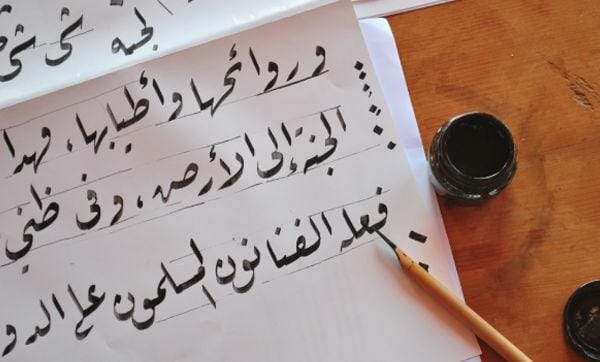 لجنة شى شى
وروائحها وأطيابها، فهذا
الجنة إلى الأرض، وفى ظني
فعله الفنانون المسلمون على الدو